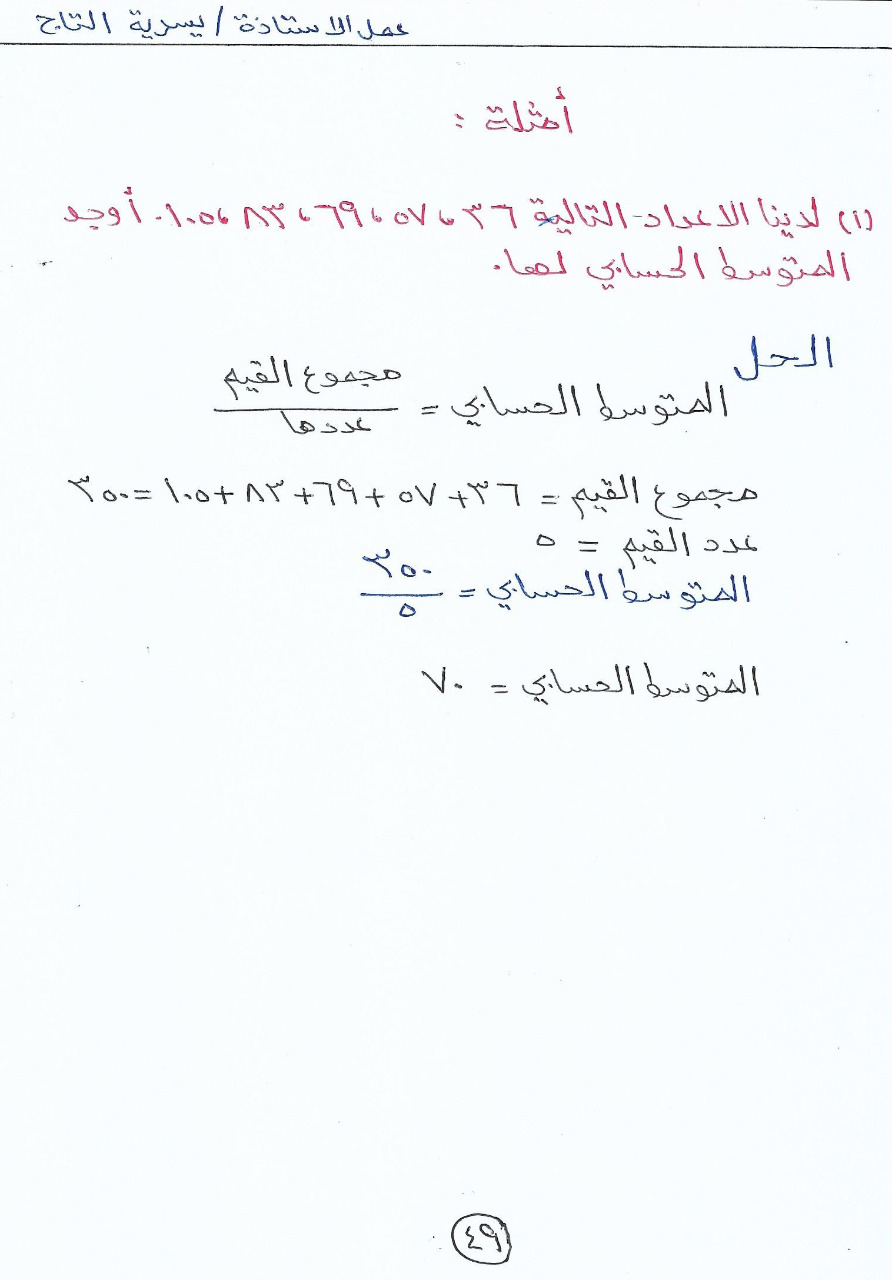 عمل الاستاذة / يسرية التاج
أمثلة :
(١) لدينا الاعداد التالية ٣٦ ، ٥٧ ، ٦٩ ، ٨٣ ، ١٠٥ . أوجد
المتوسط الحسابي لها .
الحل
المتوسط الحسابي = مجموع القيم
عددها
مجموع القيم = ٣٦ + ٥٧ + ٦٩ + ٨٣ + ١٠٥ = ٣٥٠
عدد القيم = ٥
المتوسط الحسابي = ٣٥٠
٥
المتوسط الحسابي = ٧٠
٤٩